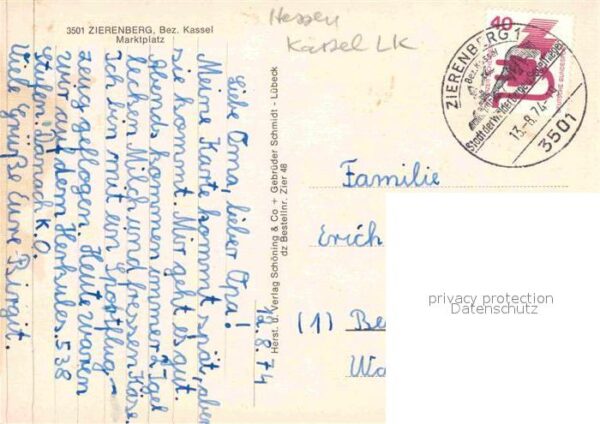 3501 ZIERENBERG, Bez. Kassel
Marktplatz
Hessen
Kassel LK
12.8.74
Liebe Oma, lieber Opa!
Meine Karte kommt spät, aber
sie kommt. Mir geht es gut.
Abends kommen immer 2 Igel
lecken Milch und fressen Käse.
Ich bin mit ein Sportflug-
zeug geflogen. Heute waren
wir auf dem Herkules. 538
Stufen. Danach K.O.
Viele Grüße Eure Birgit.
Herst. u. Verlag Schöning & Co + Gebrüder Schmidt - Lübeck
dz Bestellnr. Zier 48
40
DEUTSCHE BUNDESPOST
ZIERENBERG 1
Bez. Kassel
13.-8.74
3501
Familie
Erich
(1) Be
Wa
privacy protection
Datenschutz